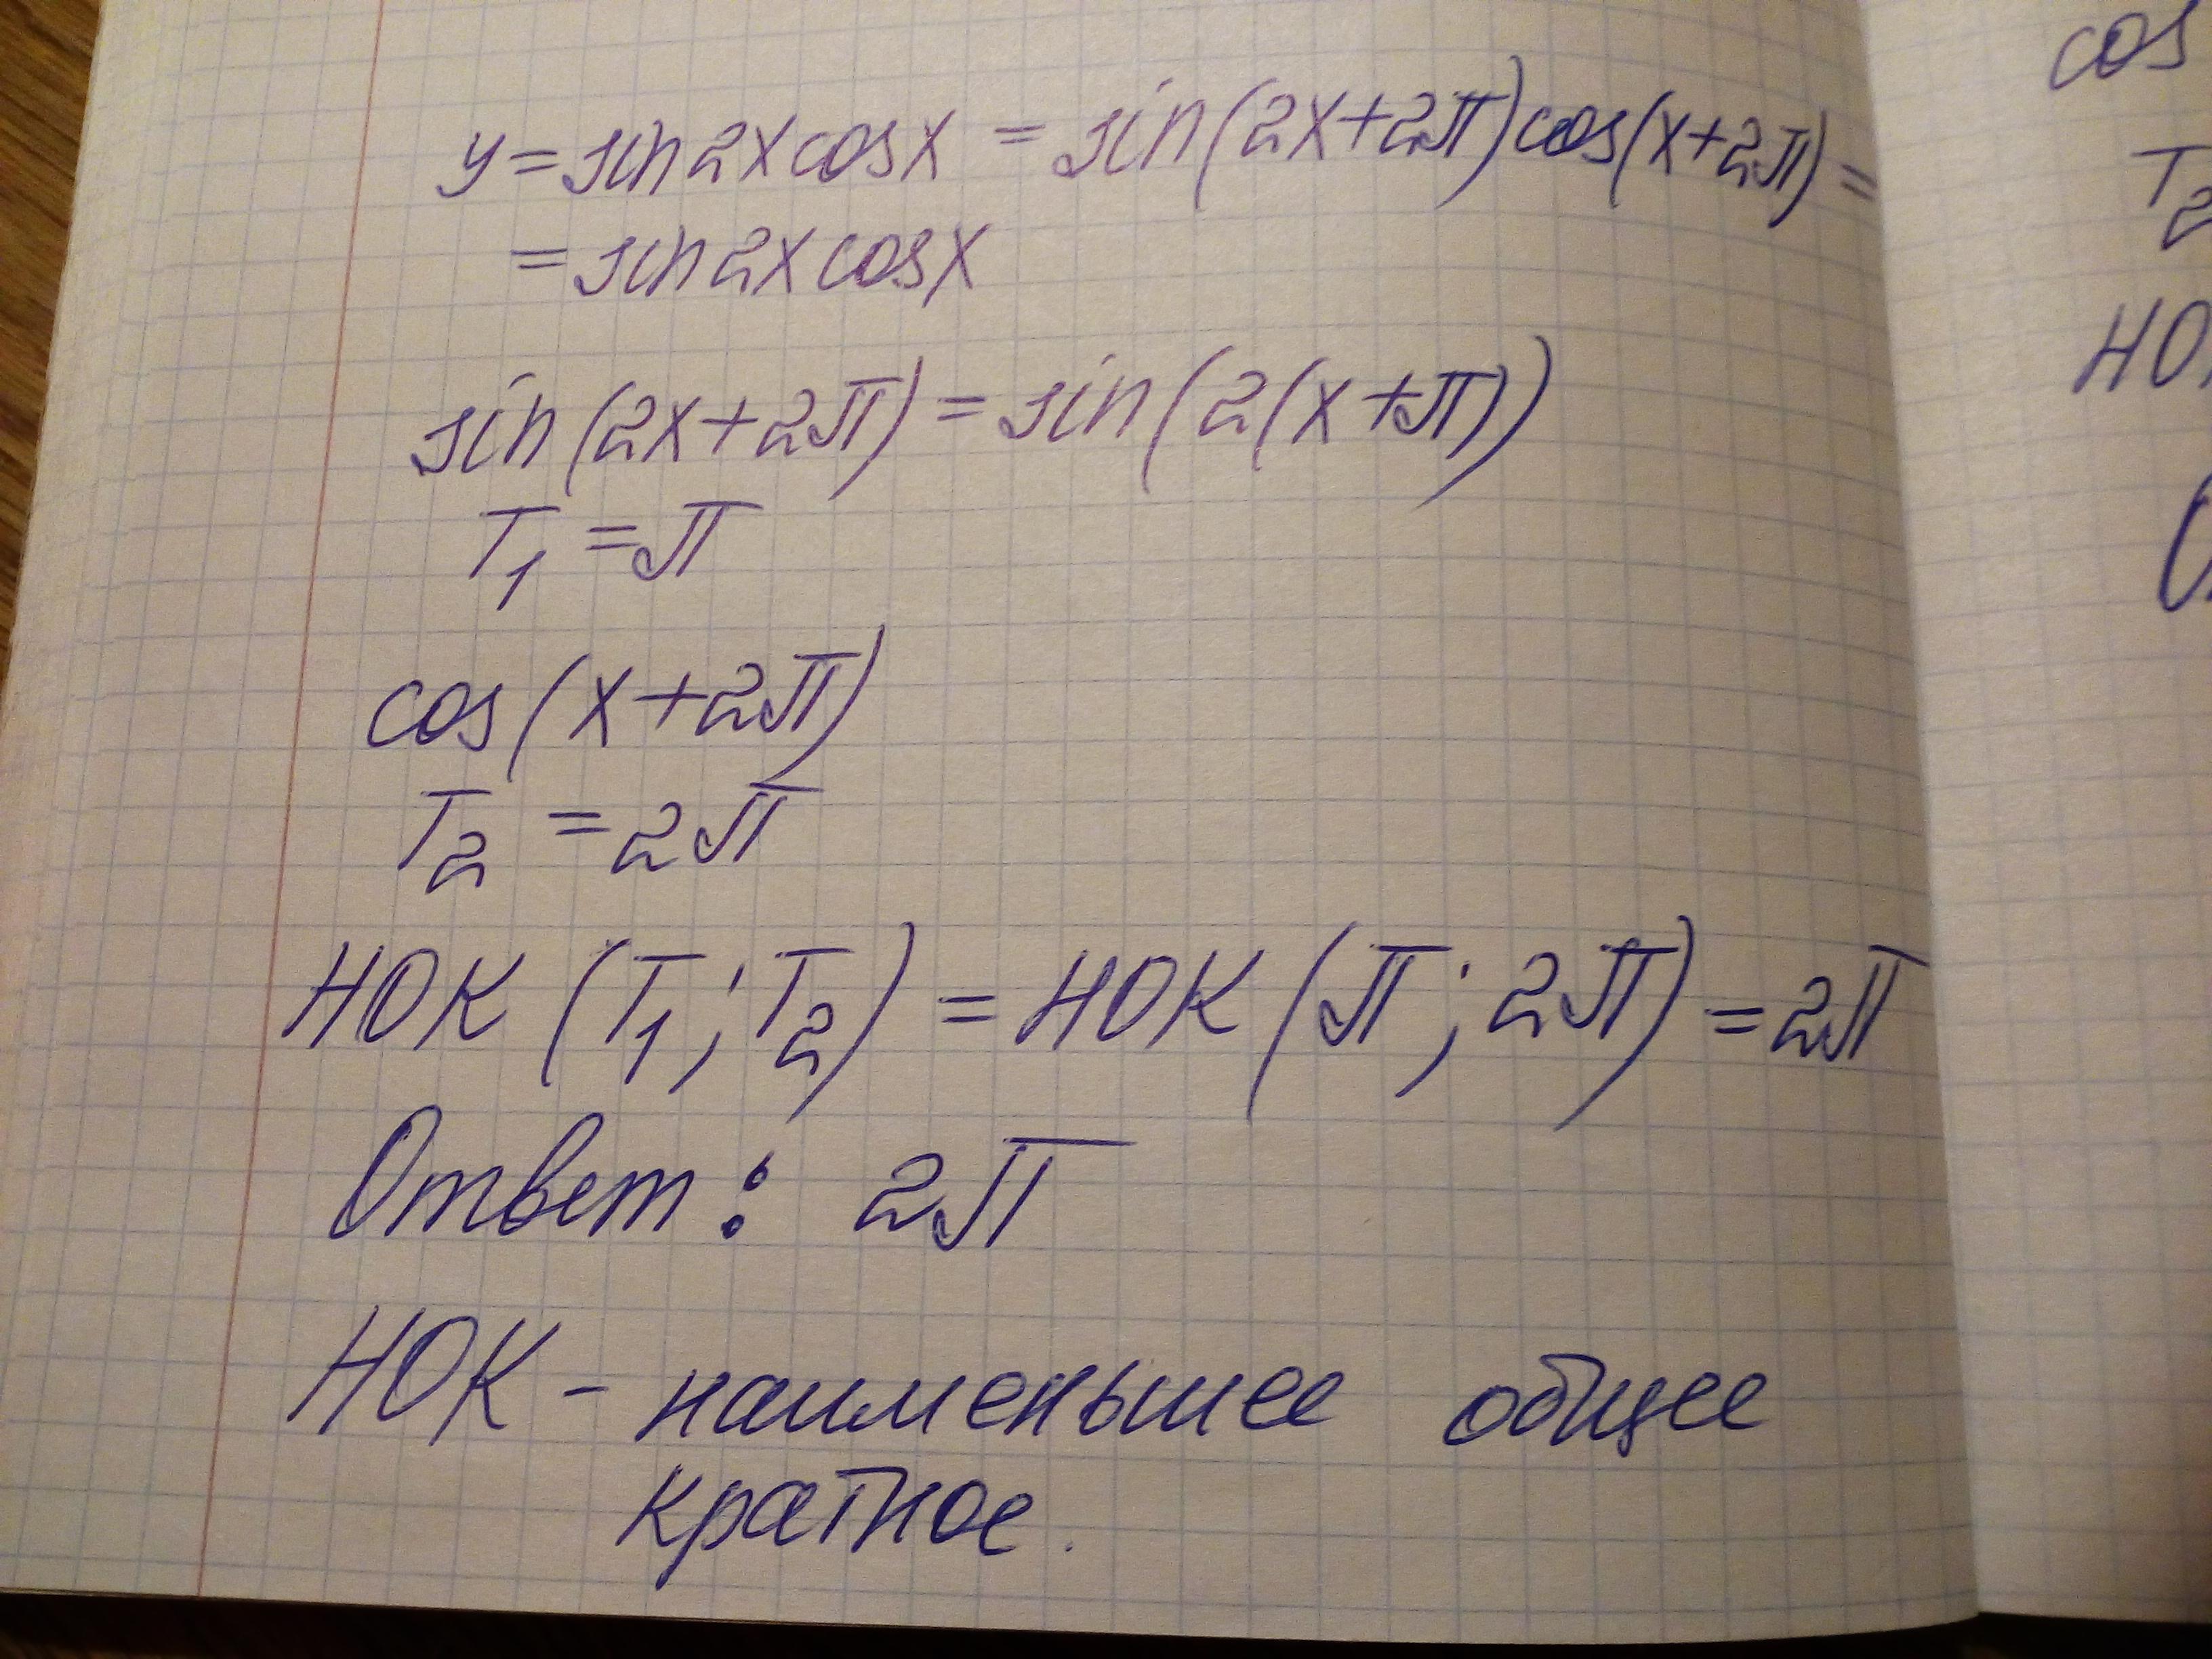 y = sin2xcosx = sin(2x+2π)cos(x+2π) =
= sin2xcosx
sin(2x+2π) = sin(2(x+π))
T₁ = π
cos(x+2π)
T₂ = 2π
НОК (T₁; T₂) = НОК (π; 2π) = 2π
Ответ: 2π
НОК - наименьшее общее
кратное.
cos
T₂
НО